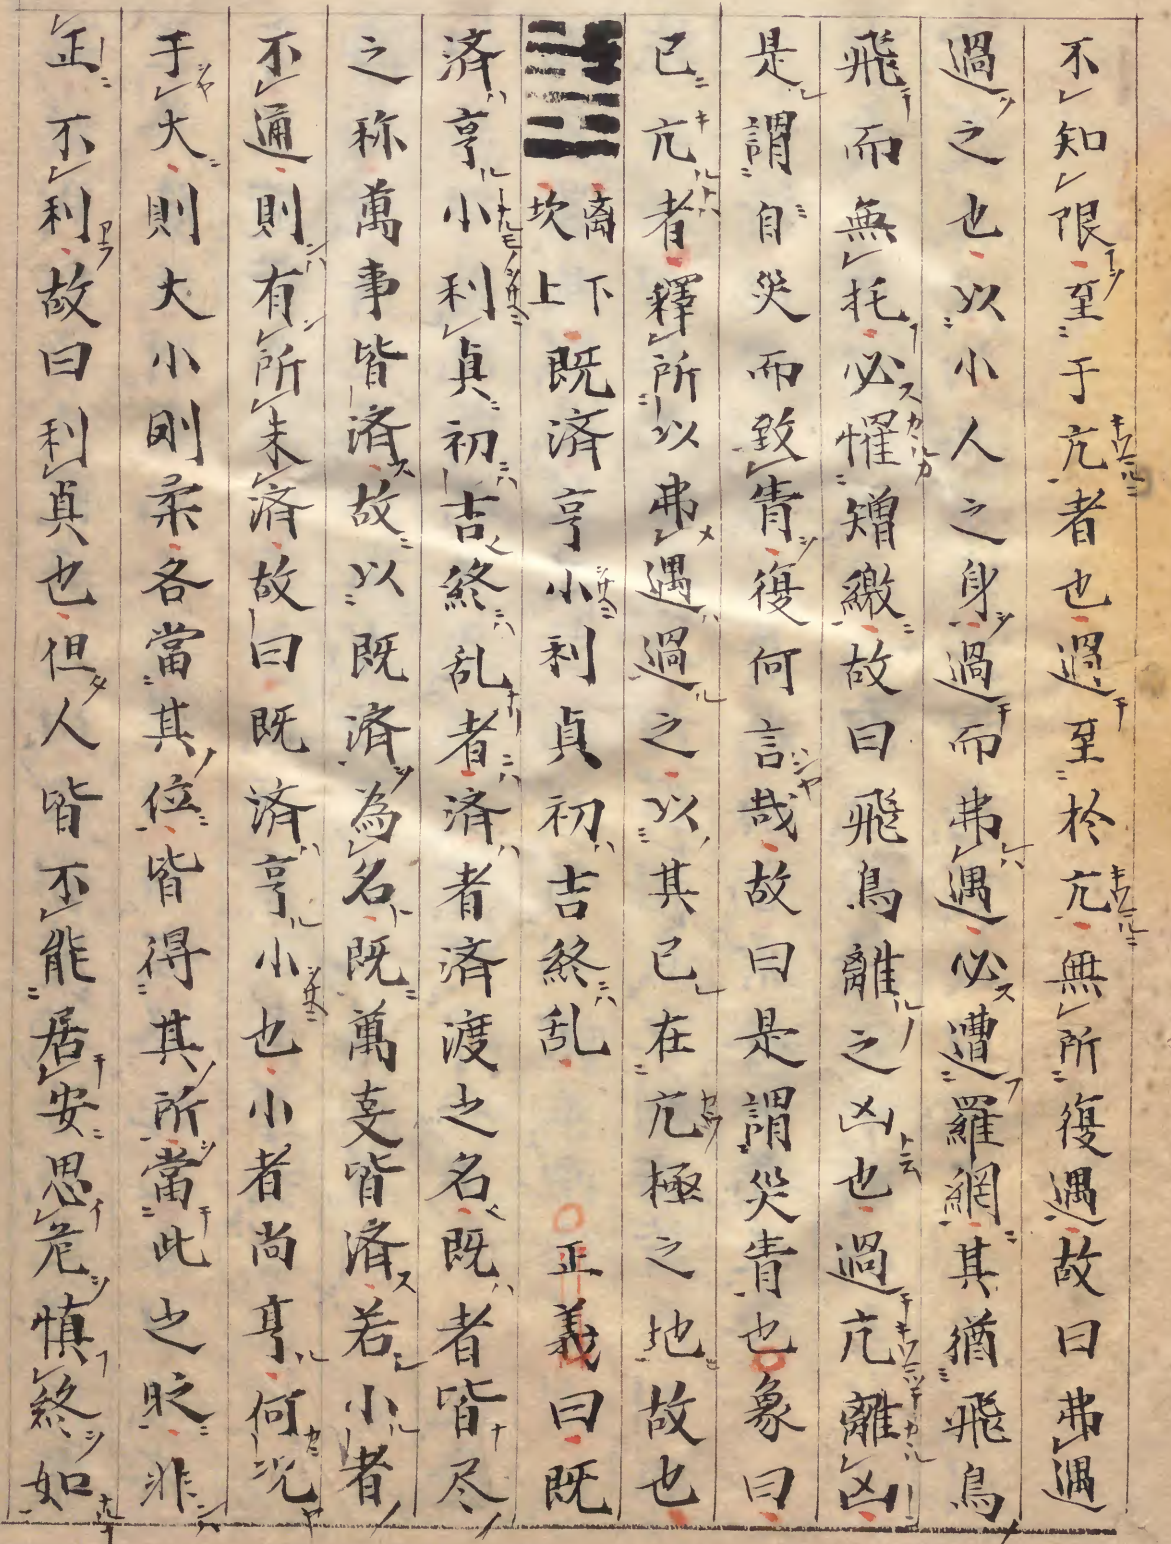 不知限至于亢者也過至於亢無所復遇故曰弗遇
過之也以小人之身過而弗遇必遭羅網其猶飛鳥
飛而無托必懼矰繳故曰飛鳥離之凶也過亢離凶
是謂自災而致眚復何言哉故曰是謂災眚也象曰
已亢者釋所以弗遇過之以其已在亢極之地故也
離下坎上既済亨小利貞初吉終乱 正義曰既
済亨小利貞初吉終乱者済者済渡之名既者皆尽
之称萬事皆済故以既済為名既萬叓皆済若小者
不通則有所未済故曰既済亨小也小者尚亨何况
于大則大小剛柔各當其位皆得其所當此之时非
正不利故曰利貞也但人皆不能居安思危慎終如